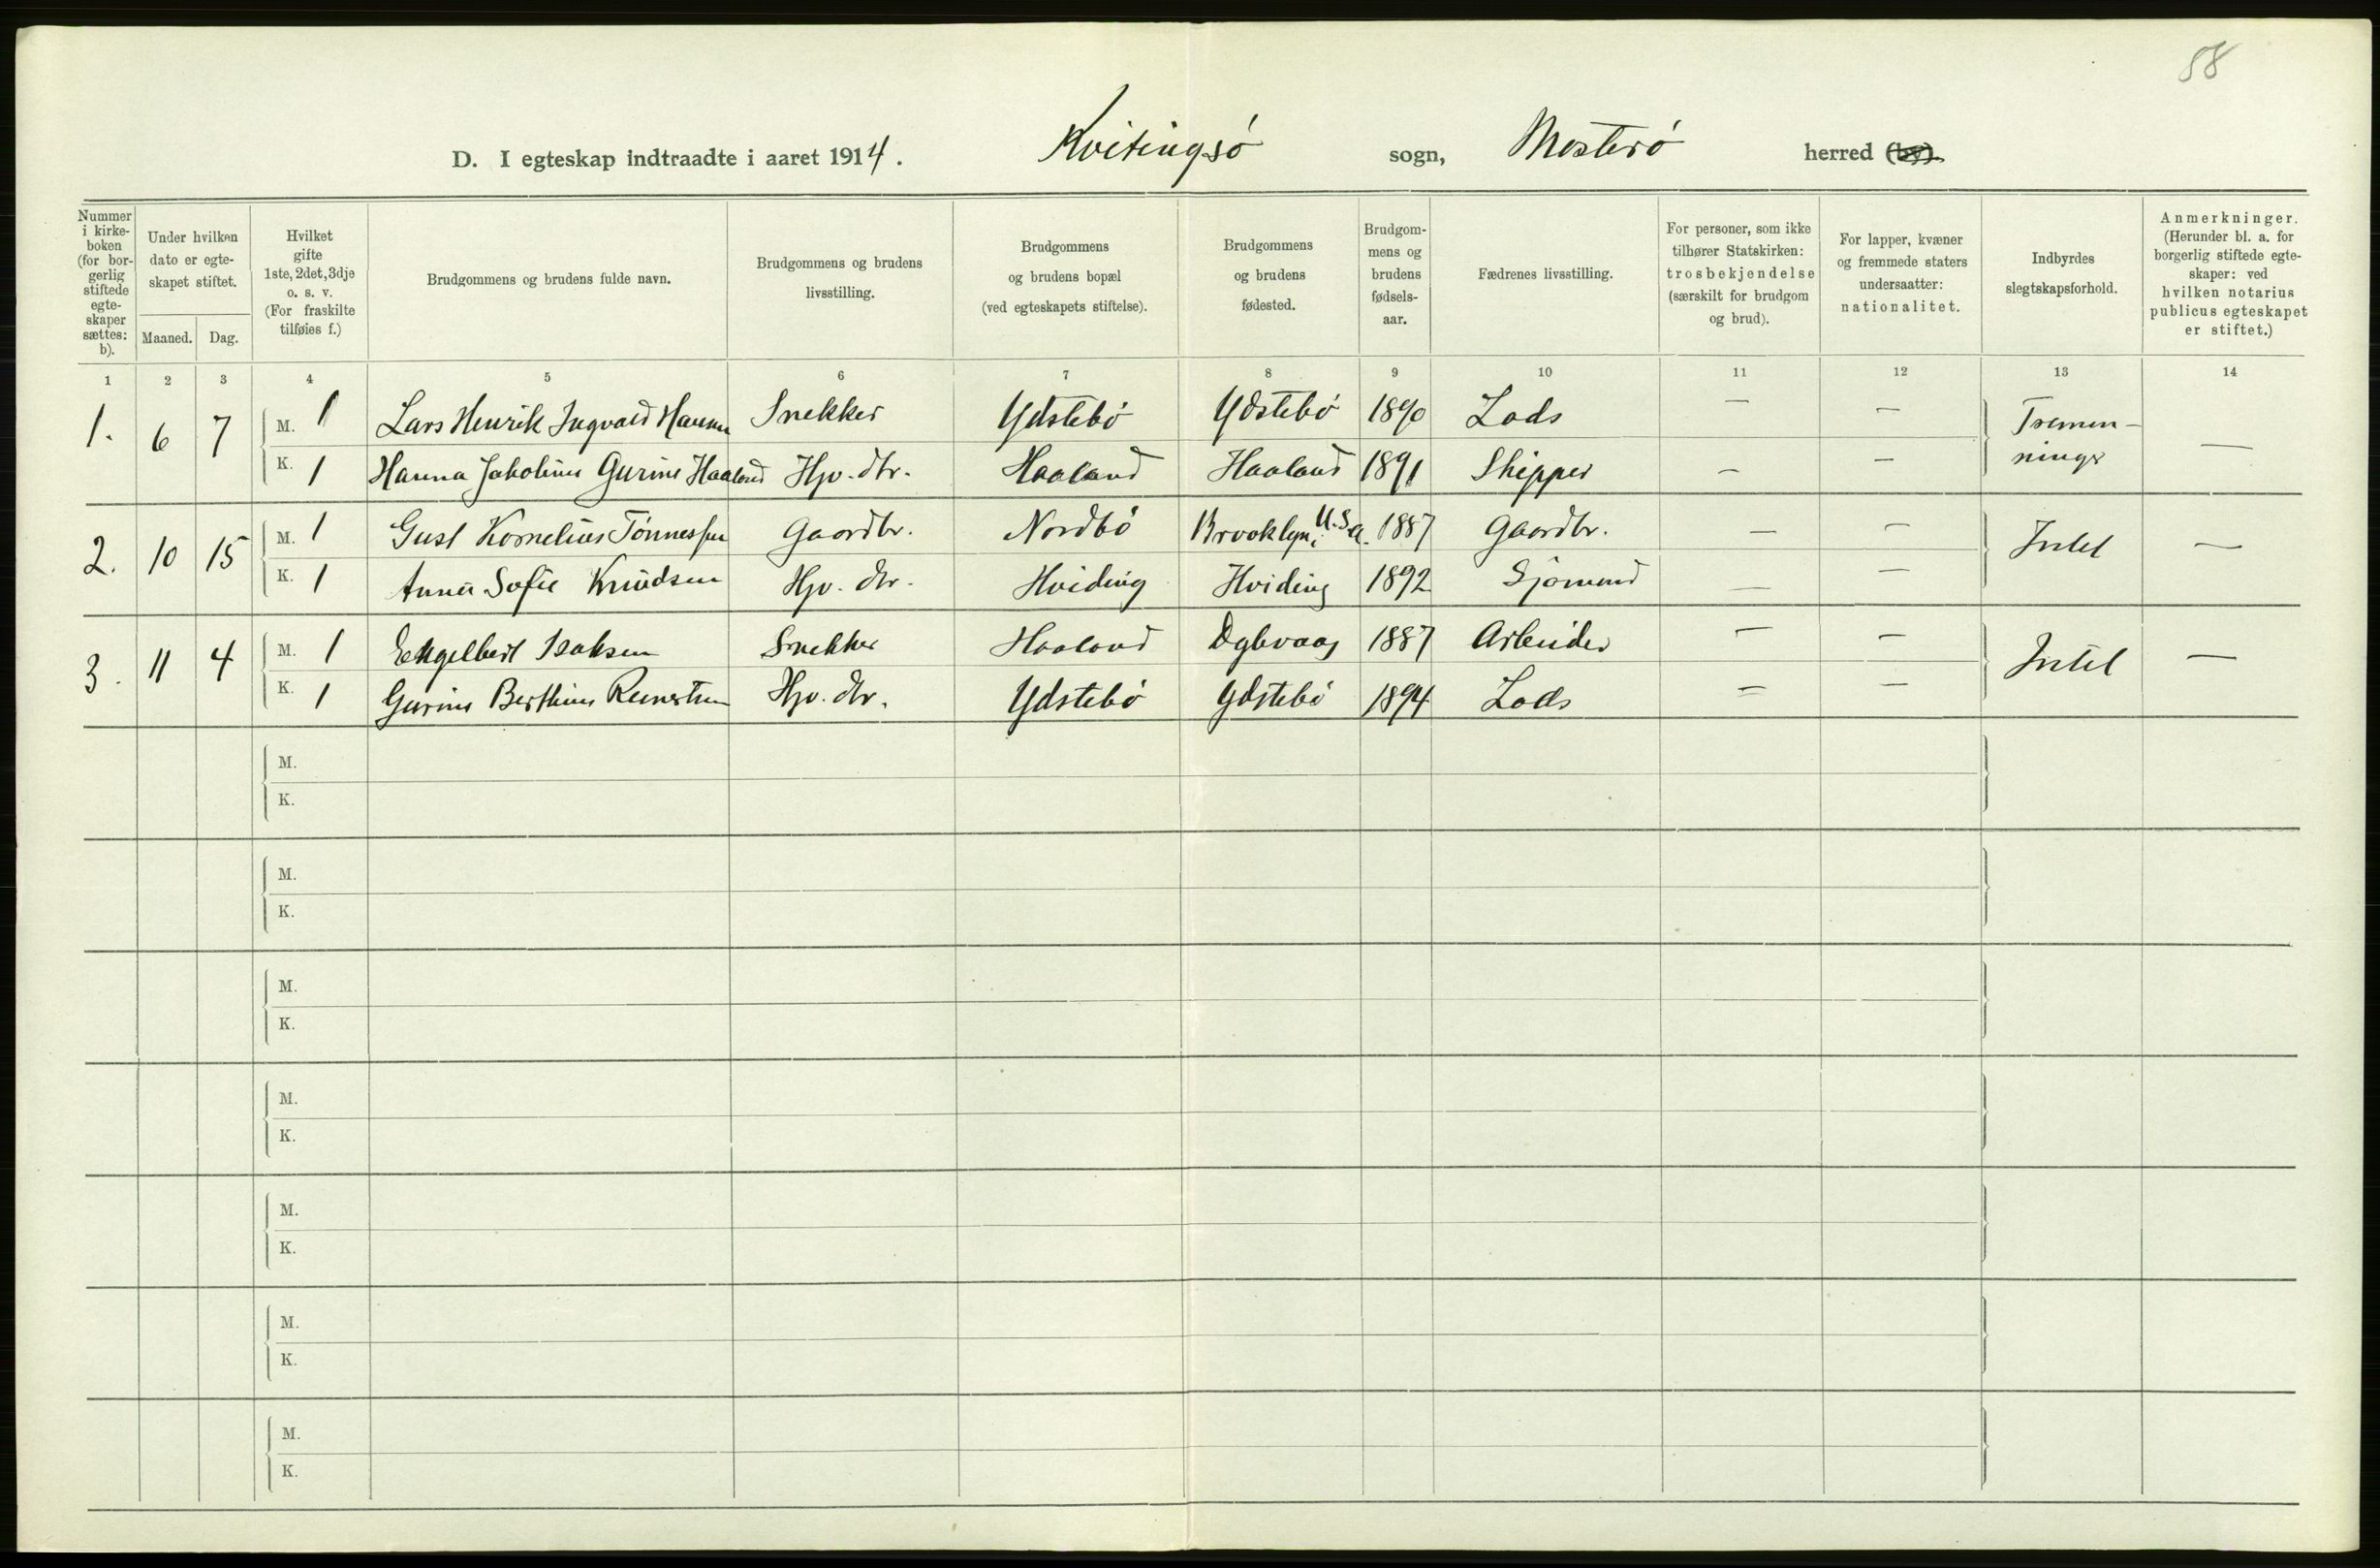 58
D. I egteskap indtraadte i aaret 1914. Kvitingsö sogn, Mosterö herred (by).
Nummer i kirke-boken (for bor-gerlig stiftede egte-skaper sættes: b).
Under hvilken dato er egte-skapet stiftet.
Maaned. Dag.
Hvilket gifte 1ste, 2det, 3dje o. s. v. (For fraskilte tilføies f.)
Brudgommens og brudens fulde navn.
Brudgommens og brudens livsstilling.
Brudgommens og brudens bopæl (ved egteskapets stiftelse).
Brudgommens og brudens fødested.
Brudgom-mens og brudens fødsels-aar.
Fædrenes livsstilling.
For personer, som ikke tilhører Statskirken: trosbekjendelse (særskilt for brudgom og brud).
For lapper, kvæner og fremmede staters undersaatter: nationalitet.
Indbyrdes slegtskapsforhold.
Anmerkninger. (Herunder bl. a. for borgerlig stiftede egte-skaper: ved hvilken notarius publicus egteskapet er stiftet.)
1 2 3 4 5 6 7 8 9 10 11 12 13 14
1. 6 7 M. 1 Lars Henrik Ingvald Snekker Ydstebö Ydstebö 1890 Lods — — Tremen-
K. 1 Hanna Jakobine Gurine Haaland Hjv. dtr. Haaland Haaland 1891 Skipper — — ninger —
2. 10 15 M. 1 Gust Kornelius Tönnessen Gaardbr. Nordbö Brooklyn, U.S.A. 1887 Gaardbr. — — Intet —
K. 1 Anna Sofie Knudsen Hjv. dtr. Hviding Hviding 1892 Sjömand — —
3. 11 4 M. 1 Engelbert Isaksen Snekker Haaland Dybvaag 1887 Arbeider — — Intet —
K. 1 Gurine Berthine Reinertsen Hjv. dtr. Ydstebö Ydstebö 1894 Lods — —
M.
K.
M.
K.
M.
K.
M.
K.
M.
K.
M.
K.
M.
K.